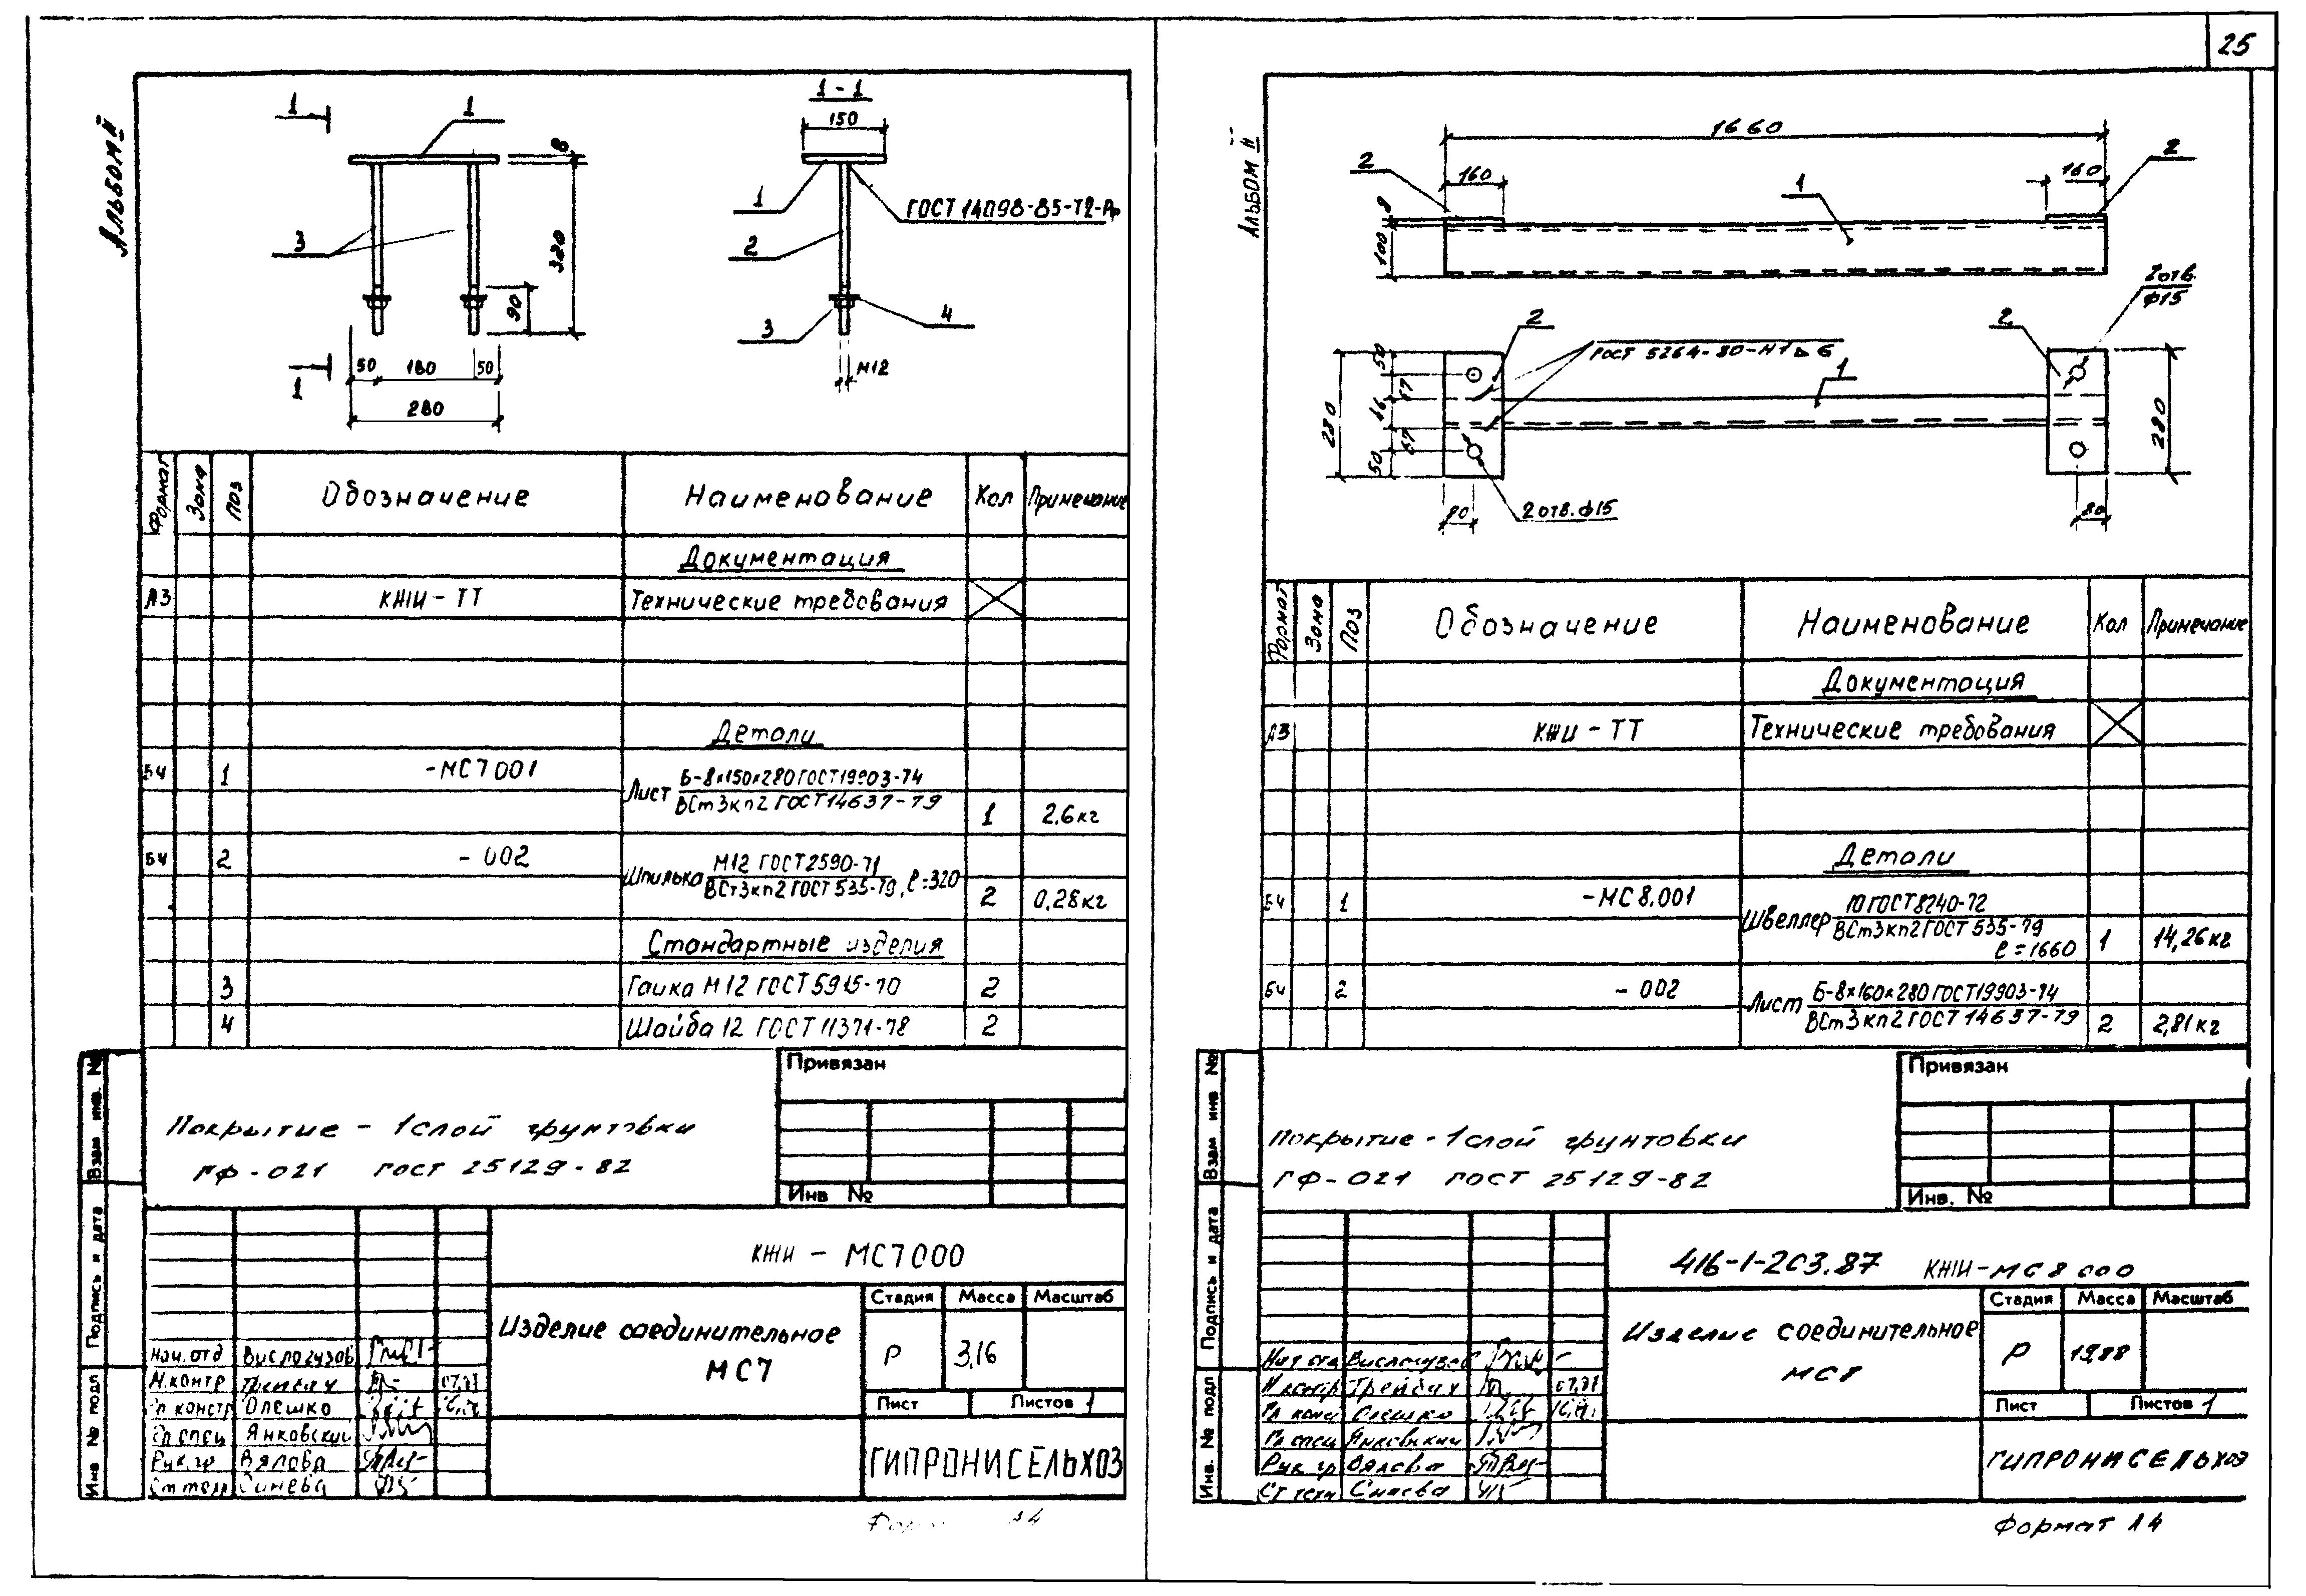 25
Альбом II
1
1
1 - 1
150
8
3
320
90
1
2
3
4
ГОСТ 14098-85-Т2-Рр
М12
1
50
180
50
280
Формат
Зона
Поз
Обозначение
Наименование
Кол
Примечание
Документация
А3
КЖИ - ТТ
Технические требования
Детали
БЧ
1
-МС7 001
Лист
Б-8х150х280 ГОСТ 19903-74
ВСт3кп2 ГОСТ 14637-79
1
2,6кг
БЧ
2
- 002
Шпилька
М12 ГОСТ 2590-71
ВСт3кп2 ГОСТ 535-79, ℓ=320
2
0,28кг
Стандартные изделия
3
Гайка М12 ГОСТ 5915-70
2
4
Шайба 12 ГОСТ 11371-78
2
Привязан
Инв №
Покрытие - 1 слой грунтовки
ГФ-021 ГОСТ 25129-82
Взам инв. №
Подпись и дата
Инв № подл
КЖИ - МС7 000
Изделие соединительное
МС7
Стадия
Масса
Масштаб
Р
3,16
Лист
Листов 1
ГИПРОНИСЕЛЬХОЗ
Нач. отд
Вислогузов
Н.контр
Трейбах
Гл констр
Олешко
Гл спец
Янковский
Рук. гр
Вялова
Ст техн
Синева
А4
Альбом II
1660
2
160
1
160
2
8
100
2 отв.
ф15
2
2
ГОСТ 5264-80-Н1 ⊿ 6
1
50
67
46
67
50
280
280
80
2 отв. ф15
80
Формат
Зона
Поз
Обозначение
Наименование
Кол
Примечание
Документация
А3
КЖИ - ТТ
Технические требования
Детали
БЧ
1
-МС8.001
Швеллер
10 ГОСТ 8240-72
ВСт3кп2 ГОСТ 535-79
ℓ=1660
1
14,26кг
БЧ
2
- 002
Лист
Б-8х160х280 ГОСТ 19903-74
ВСт3кп2 ГОСТ 14637-79
2
2,81кг
Привязан
Инв. №
Покрытие - 1 слой грунтовки
ГФ-021 ГОСТ 25129-82
Взам инв №
Подпись и дата
Инв. № подл
416-1-203.87 КЖИ-МС8 000
Изделие соединительное
МС8
Стадия
Масса
Масштаб
Р
19,88
Лист
Листов 1
ГИПРОНИСЕЛЬХОЗ
Вислогузов
Н контр
Трейбах
Олешко
Гл спец
Янковский
Рук. гр
Вялова
Ст техн
Синева
Формат А4